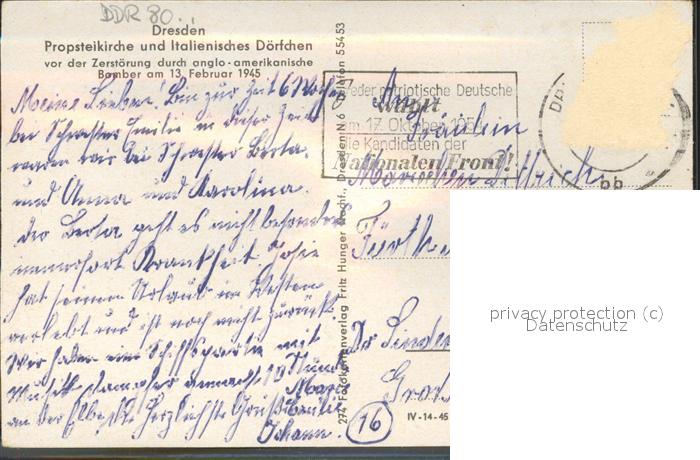 DDR 80..
Dresden
Propsteikirche und Italienisches Dörfchen
vor der Zerstörung durch anglo-amerikanische
Bomber am 13. Februar 1945
Meine Lieben! Bin zur Zeit 6 Wochen
bei Schwester Emilie in dieser Zeit
waren wir bei Schwester Berta
und Anna und Karolina.
Der Berta geht es nicht besonders
immerfort Krankheit
hat seinen Urlaub im Westen
verlebt und ist noch nicht zurück.
Wir haben eine Schiffspartie mit
Musik Dampfer gemacht 10 Stund
an der Elbe. Die herzlichste Grüße
Johann.
274 Fotokartenverlag Fritz Hunger Nachf., Dresden N 6 Telefon 55453
Jeder patriotische Deutsche
wählt
am 17. Oktober 195
die Kandidaten der
Nationalen Front!
An
Fräulein
Dittrich
Fürth
bb
16
IV-14-45
privacy protection (c)
Datenschutz